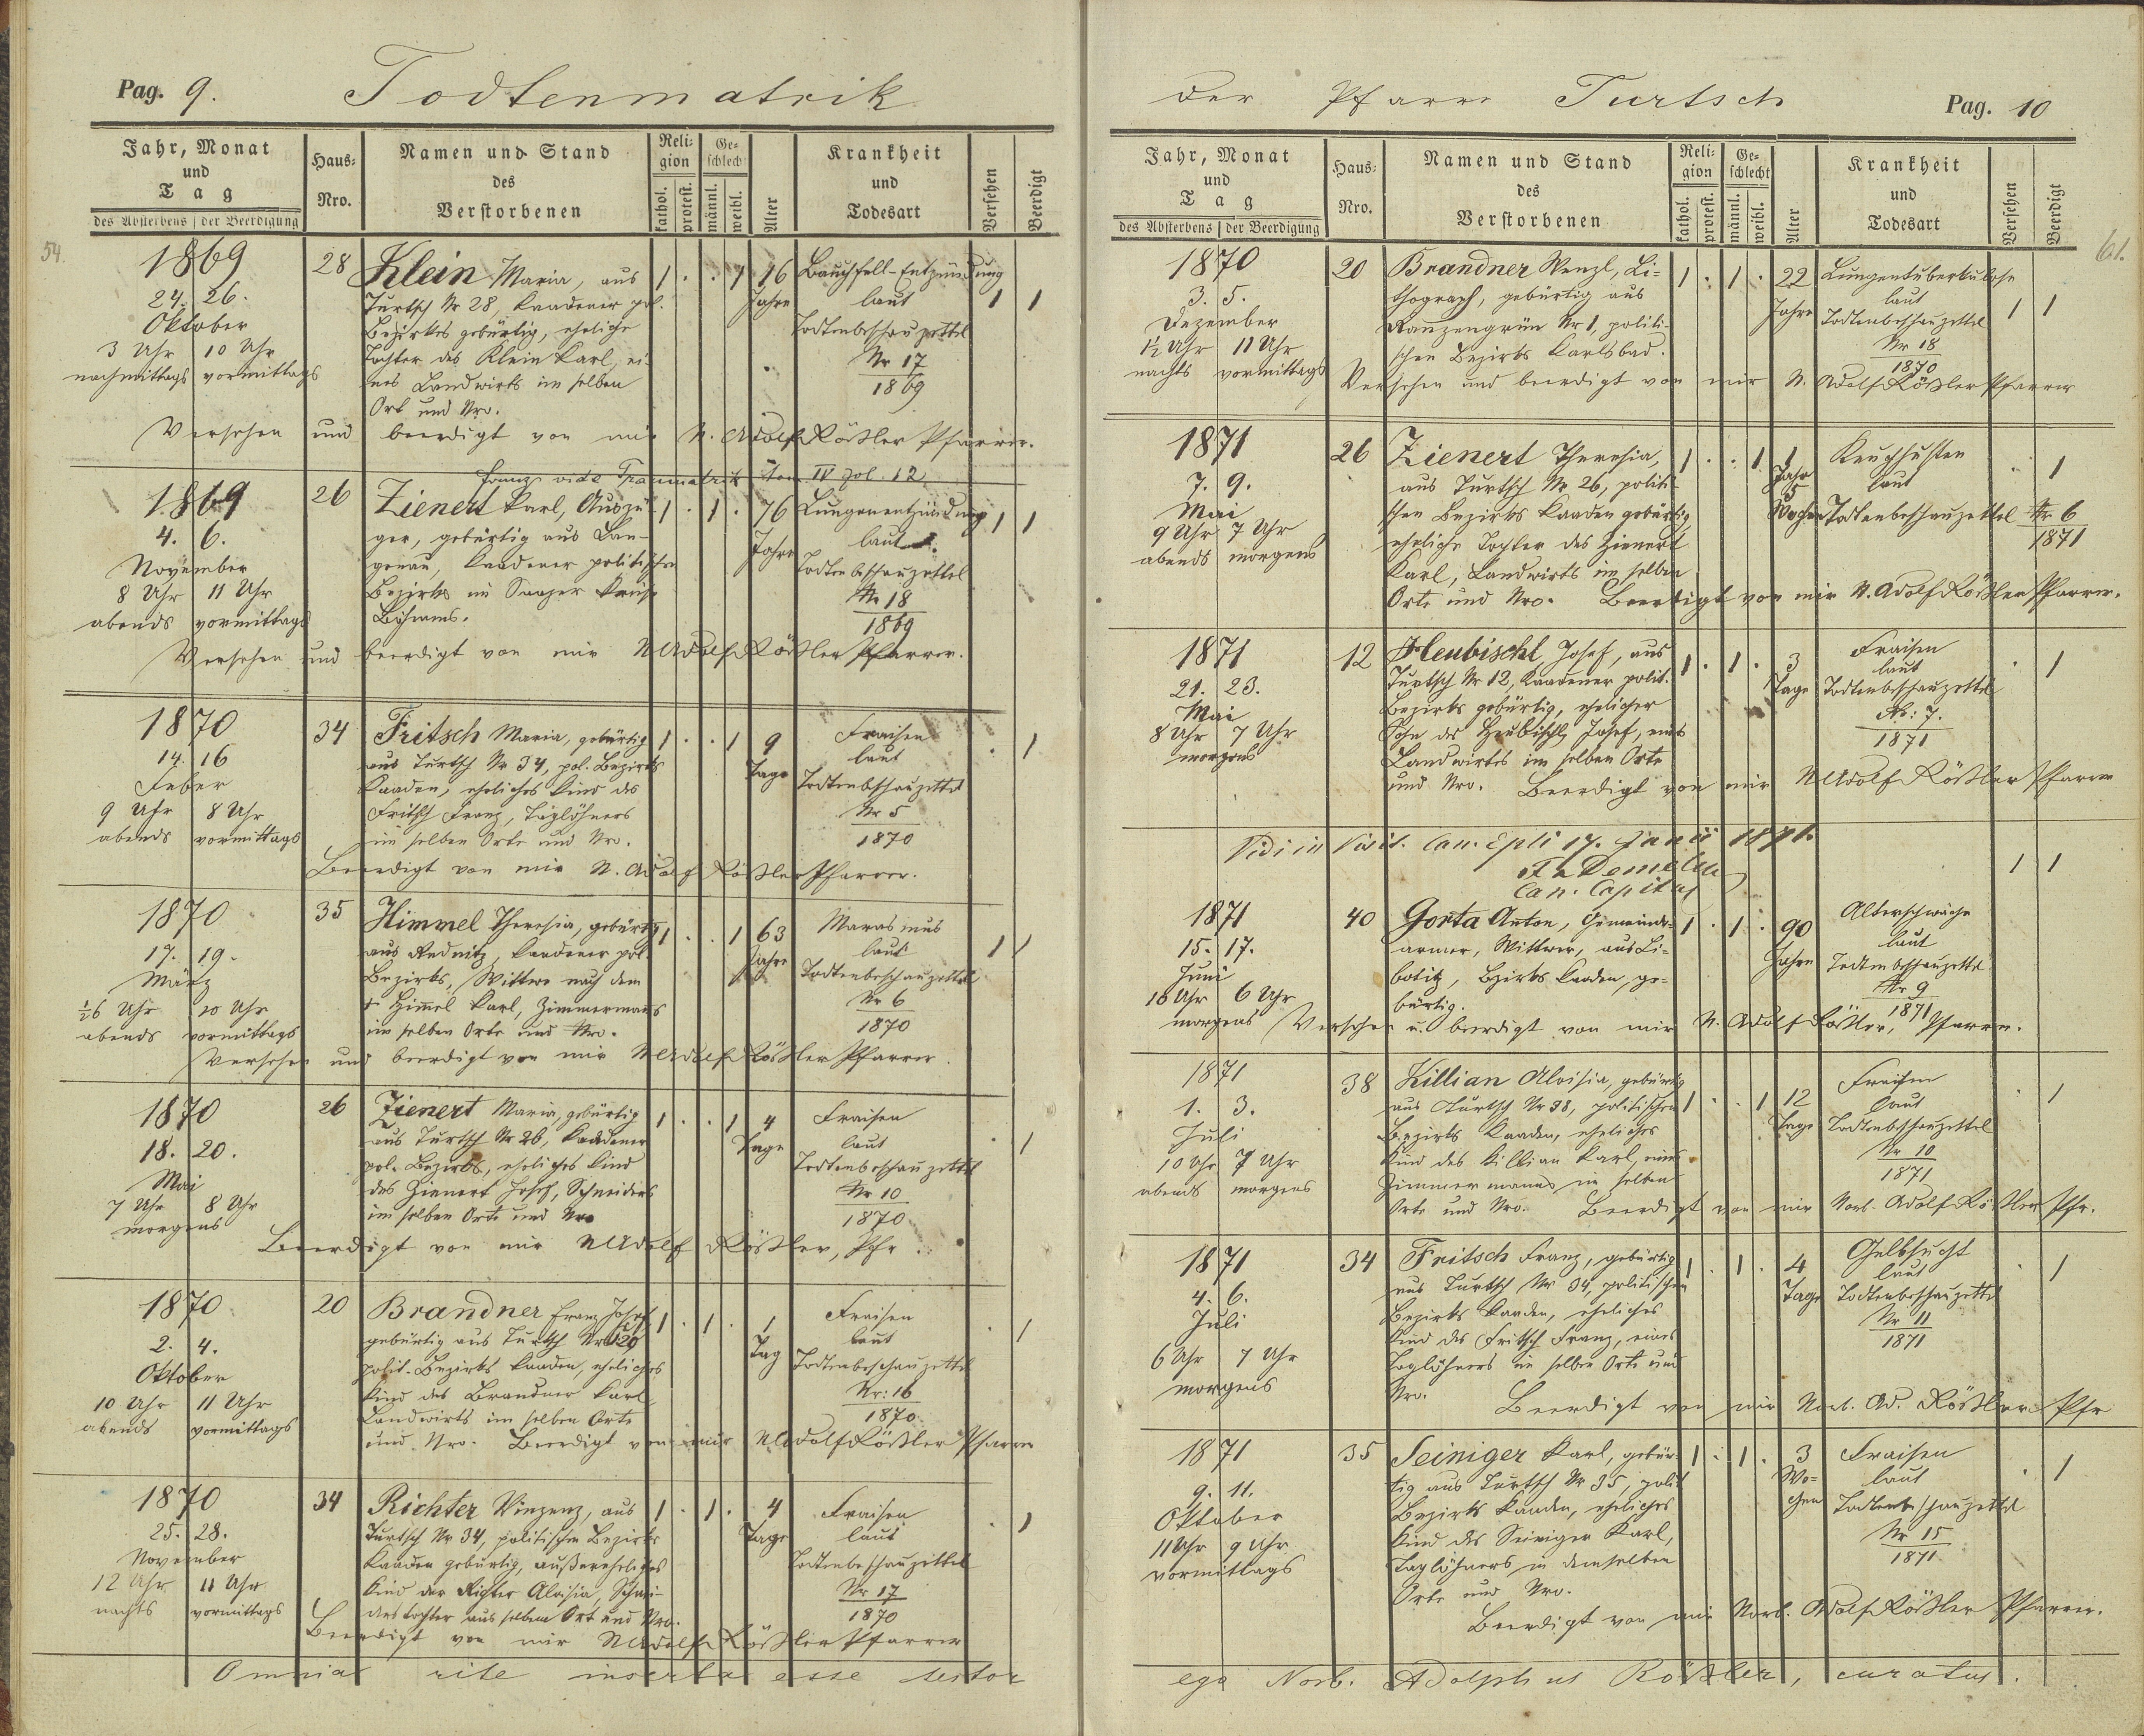 Pag. 9. Todtenmatrik
Jahr, Monat und Tag
des Absterbens | der Beerdigung
Haus-Nro.
Namen und Stand des Verstorbenen
Religion
kathol. protest.
Geschlecht
männl. weibl.
Alter
Krankheit und Todesart
Versehen
Beerdigt
54
1869
24. 26.
Oktober
3 Uhr 10 Uhr
nachmittags vormittags
28
Klein Maria, aus
Turtsch Nr 28, Kaadener pol.
Bezirkes gebürtig, eheliche
Tochter des Klein Karl, ei-
nes Landwirts im selben
Ort und Nro.
1 . . 1
16 Jahre
Bauchfell-Entzündung
laut
Todtenbeschauzettel
Nr 17
1869
1 1
Versehen und beerdigt von mir N. Adolf Rößler Pfarrer.
Franz vide Traumatrik tom IV fol. 12
1869
4. 6.
November
8 Uhr 11 Uhr
abends vormittags
26
Zienert Karl, Auszü-
ger, gebürtig aus Lan-
genau, Kaadener politischen
Bezirks im Saazer Kreise
Böhmens.
1 . 1 .
76 Jahre
Lungenentzündung
laut
Todtenbeschauzettel
Nr 18
1869
1 1
Versehen und beerdigt von mir N Adolf Rößler Pfarrer.
1870
14. 16
Feber
9 Uhr 8 Uhr
abends vormittags
34
Fritsch Maria, gebürtig
aus Turtsch Nr 34, pol. Bezirks
Kaaden, eheliches Kind des
Fritsch Franz, Taglöhners
im selben Orte und Nro.
1 . . 1
9 Tage
Fraisen
laut
Todtenbschauzettel
Nr 5
1870
. 1
Beerdigt von mir N. Adolf Rößler Pfarrer.
1870
17. 19.
März
½6 Uhr 10 Uhr
abends vormittags
35
Himmel Theresia, gebürtig
aus Rednitz, Kaadener pol.
Bezirks, Wittwe nach dem
† Himmel Karl, Zimmermanns
im selben Orte und Nro.
1 . . 1
63 Jahre
Marasmus
laut
Todtenbeschauzettel
Nr 6
1870
1 1
Versehen und beerdigt von mir N Adolf Rößler Pfarrer.
1870
18. 20.
Mai
7 Uhr 8 Uhr
morgens
26
Zienert Maria, gebürtig
aus Turtsch Nr 26, Kaadener
pol. Bezirks, eheliches Kind
des Zienert Josef, Schneiders
im selben Orte und Nro
1 . . 1
4 Tage
Fraisen
laut
Todtenbeschauzettel
Nr 10
1870
. 1
Beerdigt von mir N Adolf Rößler, Pfr.
1870
2. 4.
Oktober
10 Uhr 11 Uhr
abends vormittags
20
Brandner Franz Josef
gebürtig aus Turtsch Nr 20
polit. Bezirks Kaaden, eheliches
Kind des Brandner Karl,
Landwirts im selben Orte
und Nro. Beerdigt von mir N Adolf Rößler Pfarrer
1 . 1 .
1 Tag
Fraisen
laut
Todtenbeschauzettel
Nr: 16
1870
. 1
1870
25. 28.
November
12 Uhr 11 Uhr
nachts vormittags
34
Richter Vinzenz, aus
Turtsch Nr 34, politischen Bezirks
Kaaden gebürtig, außereheliches
Kind der Richter Aloisia,
aus selbem Ort und Nro.
1 . 1 .
4 Tage
Fraisen
laut
Todtenbeschauzettel
Nr 17
1870
. 1
Beerdigt von mir N Adolf Rößler Pfarrer
Omnia rite inserta esse testor
der Pfarre Turtsch Pag. 10
Jahr, Monat und Tag
des Absterbens | der Beerdigung
Haus-Nro.
Namen und Stand des Verstorbenen
Religion
kathol. protest.
Geschlecht
männl. weibl.
Alter
Krankheit und Todesart
Versehen
Beerdigt
61.
1870
3. 5.
Dezember
½ Uhr 11 Uhr
nachts vormittags
20
Brandner Wenzl, Li-
thograph, gebürtig aus
Ranzengrün Nr 1, politi-
schen Bezirks Karlsbad.
1 . 1 .
22 Jahre
Lungentuberkulose
laut
Todtenbeschauzettel
Nr 18
1870
1 1
Versehen und beerdigt von mir N. Adolf Rößler Pfarrer
1871
7. 9.
Mai
9 Uhr 7 Uhr
abends morgens
26
Zienert Theresia,
aus Turtsch Nr 26, politi-
schen Bezirks Kaaden gebürtig,
eheliche Tochter des Zienert
Karl, Landwirts im selben
Orte und Nro. Beerdigt von mir N. Adolf Rößler Pfarrer.
1 . . 1
1 Jahr 5 Wochen
Keuchhusten
laut
Todtenbeschauzettel Nr 6
1871
. 1
1871
21. 23.
Mai
8 Uhr 7 Uhr
morgens
12
Heubischl Josef, aus
Turtsch Nr 12, Kaadener polit.
Bezirks gebürtig, ehelicher
Sohn des Heubischl Josef, eines
Landwirtes im selben Orte
und Nro. Beerdigt von mir N Adolf Rößler Pfarrer
1 . 1 .
3 Tage
Fraisen
laut
Todtenbeschauzettel
Nr: 7.
1871
. 1
Vidi in visit. can. Epli 17. Junii 1871.
Can. Capitus
1 1
1871
15. 17.
Juni
10 Uhr 6 Uhr
morgens
40
Gorta Anton, Gemeinde-
armer, Wittwer, aus Li-
botitz, Bezirks Kaaden, ge-
bürtig.
1 . 1 .
90 Jahre
Altersschwäche
laut
Todtenbeschauzettel
Nr 9
1871
Versehen u. beerdigt von mir N. Adolf Rößler, Pfarrer.
1871
1. 3.
Juli
10 Uhr 7 Uhr
abends morgens
38
Killian Aloisia, gebürtig
aus Turtsch Nr 38, politischen
Bezirks Kaaden, eheliches
Kind des Killian Karl, eines
Zimmermanns im selben
Orte und Nro. Beerdigt von mir Norb. Adolf Rößler Pfr.
1 . . 1
12 Tage
Fraisen
laut
Todtenbeschauzettel
Nr 10
1871
. 1
1871
4. 6.
Juli
6 Uhr 7 Uhr
morgens
34
Fritsch Franz, gebürtig
aus Turtsch Nr 34, politischen
Bezirks Kaaden, eheliches
Kind des Fritsch Franz, eines
Taglöhners im selben Orte und
Nro. Beerdigt von mir Norb. Ad. Rößler Pfr
1 . 1 .
4 Tage
Gelbsucht
laut
Todtenbeschauzettel
Nr 11
1871
. 1
1871
9. 11.
Oktober
11 Uhr 9 Uhr
vormittags
35
Seiniger Karl, gebür-
tig aus Turtsch Nr 35, polit
Bezirks Kaaden, eheliches
Kind des Seiniger Karl,
Taglöhners in demselben
Orte und Nro.
1 . 1 .
3 Wo-
chen
Fraisen
laut
Todtenbeschauzettel
Nr 15
1871
. 1
Beerdigt von mir Norb. Adolf Rößler Pfarrer.
ego Norb. Adolphus Rößler, curatus.